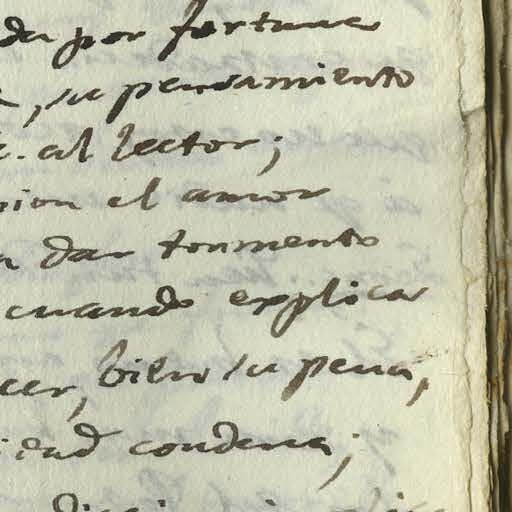 da por fortuna
, su pensamiento
al lector;
nion el amor
a dar tormento
cuando explicar
cer, bien su pena,
iend condena;